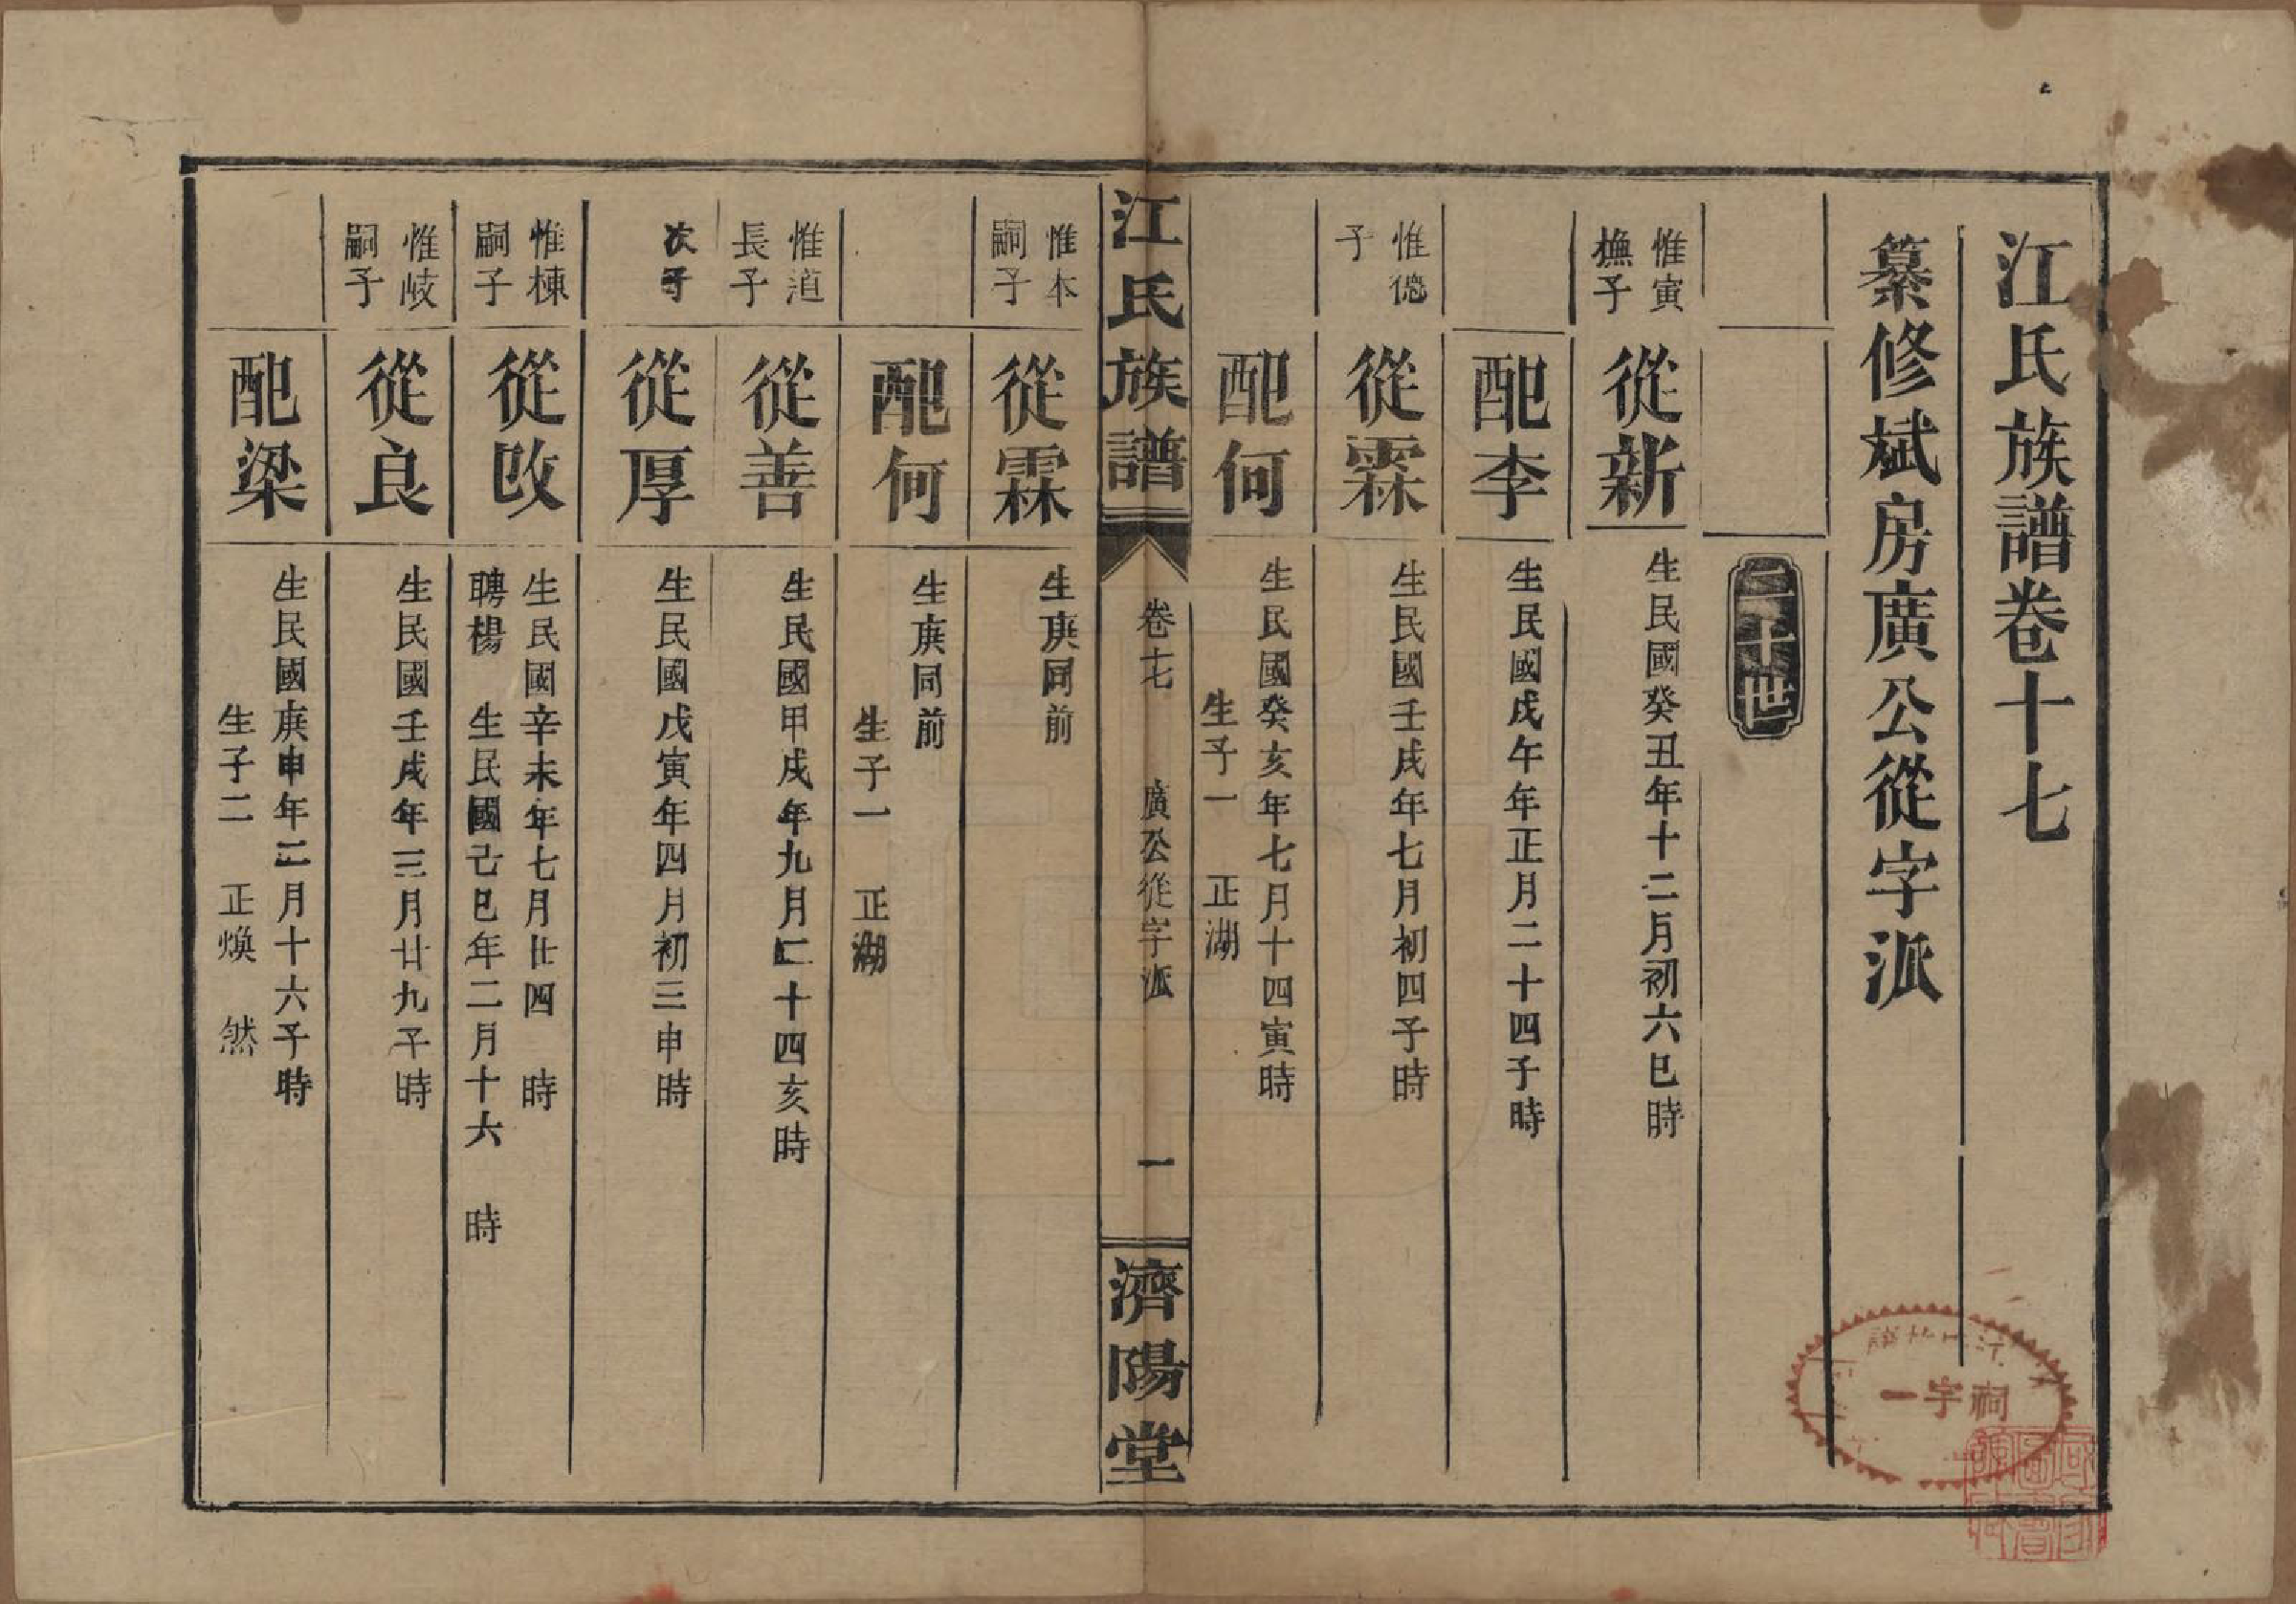 江氏族譜卷十七
纂修斌房廣公從字派
二十世
惟寅
橅子
從新
生民國癸丑年十二月初六巳時
配李
生民國戊午年正月二十四子時
惟德
子
從霖
生民國壬戌年七月初四子時
配何
生民國癸亥年七月十四寅時
生子一 正湖
江氏族譜
卷十七 廣公從字派 一
濟陽堂
惟本
嗣子
從霖
生庚同前
配何
生庚同前
生子一 正湖
惟道
長子
從善
生民國甲戌年九月二十四亥時
次子
從厚
生民國戊寅年四月初三申時
惟棟
嗣子
從改
生民國辛未年七月廿四 時
聘楊 生民國己巳年二月十六 時
惟岐
嗣子
從良
生民國壬戌年三月廿九子時
配梁
生民國庚申年二月十六子時
生子二 正煥 然
祠字一